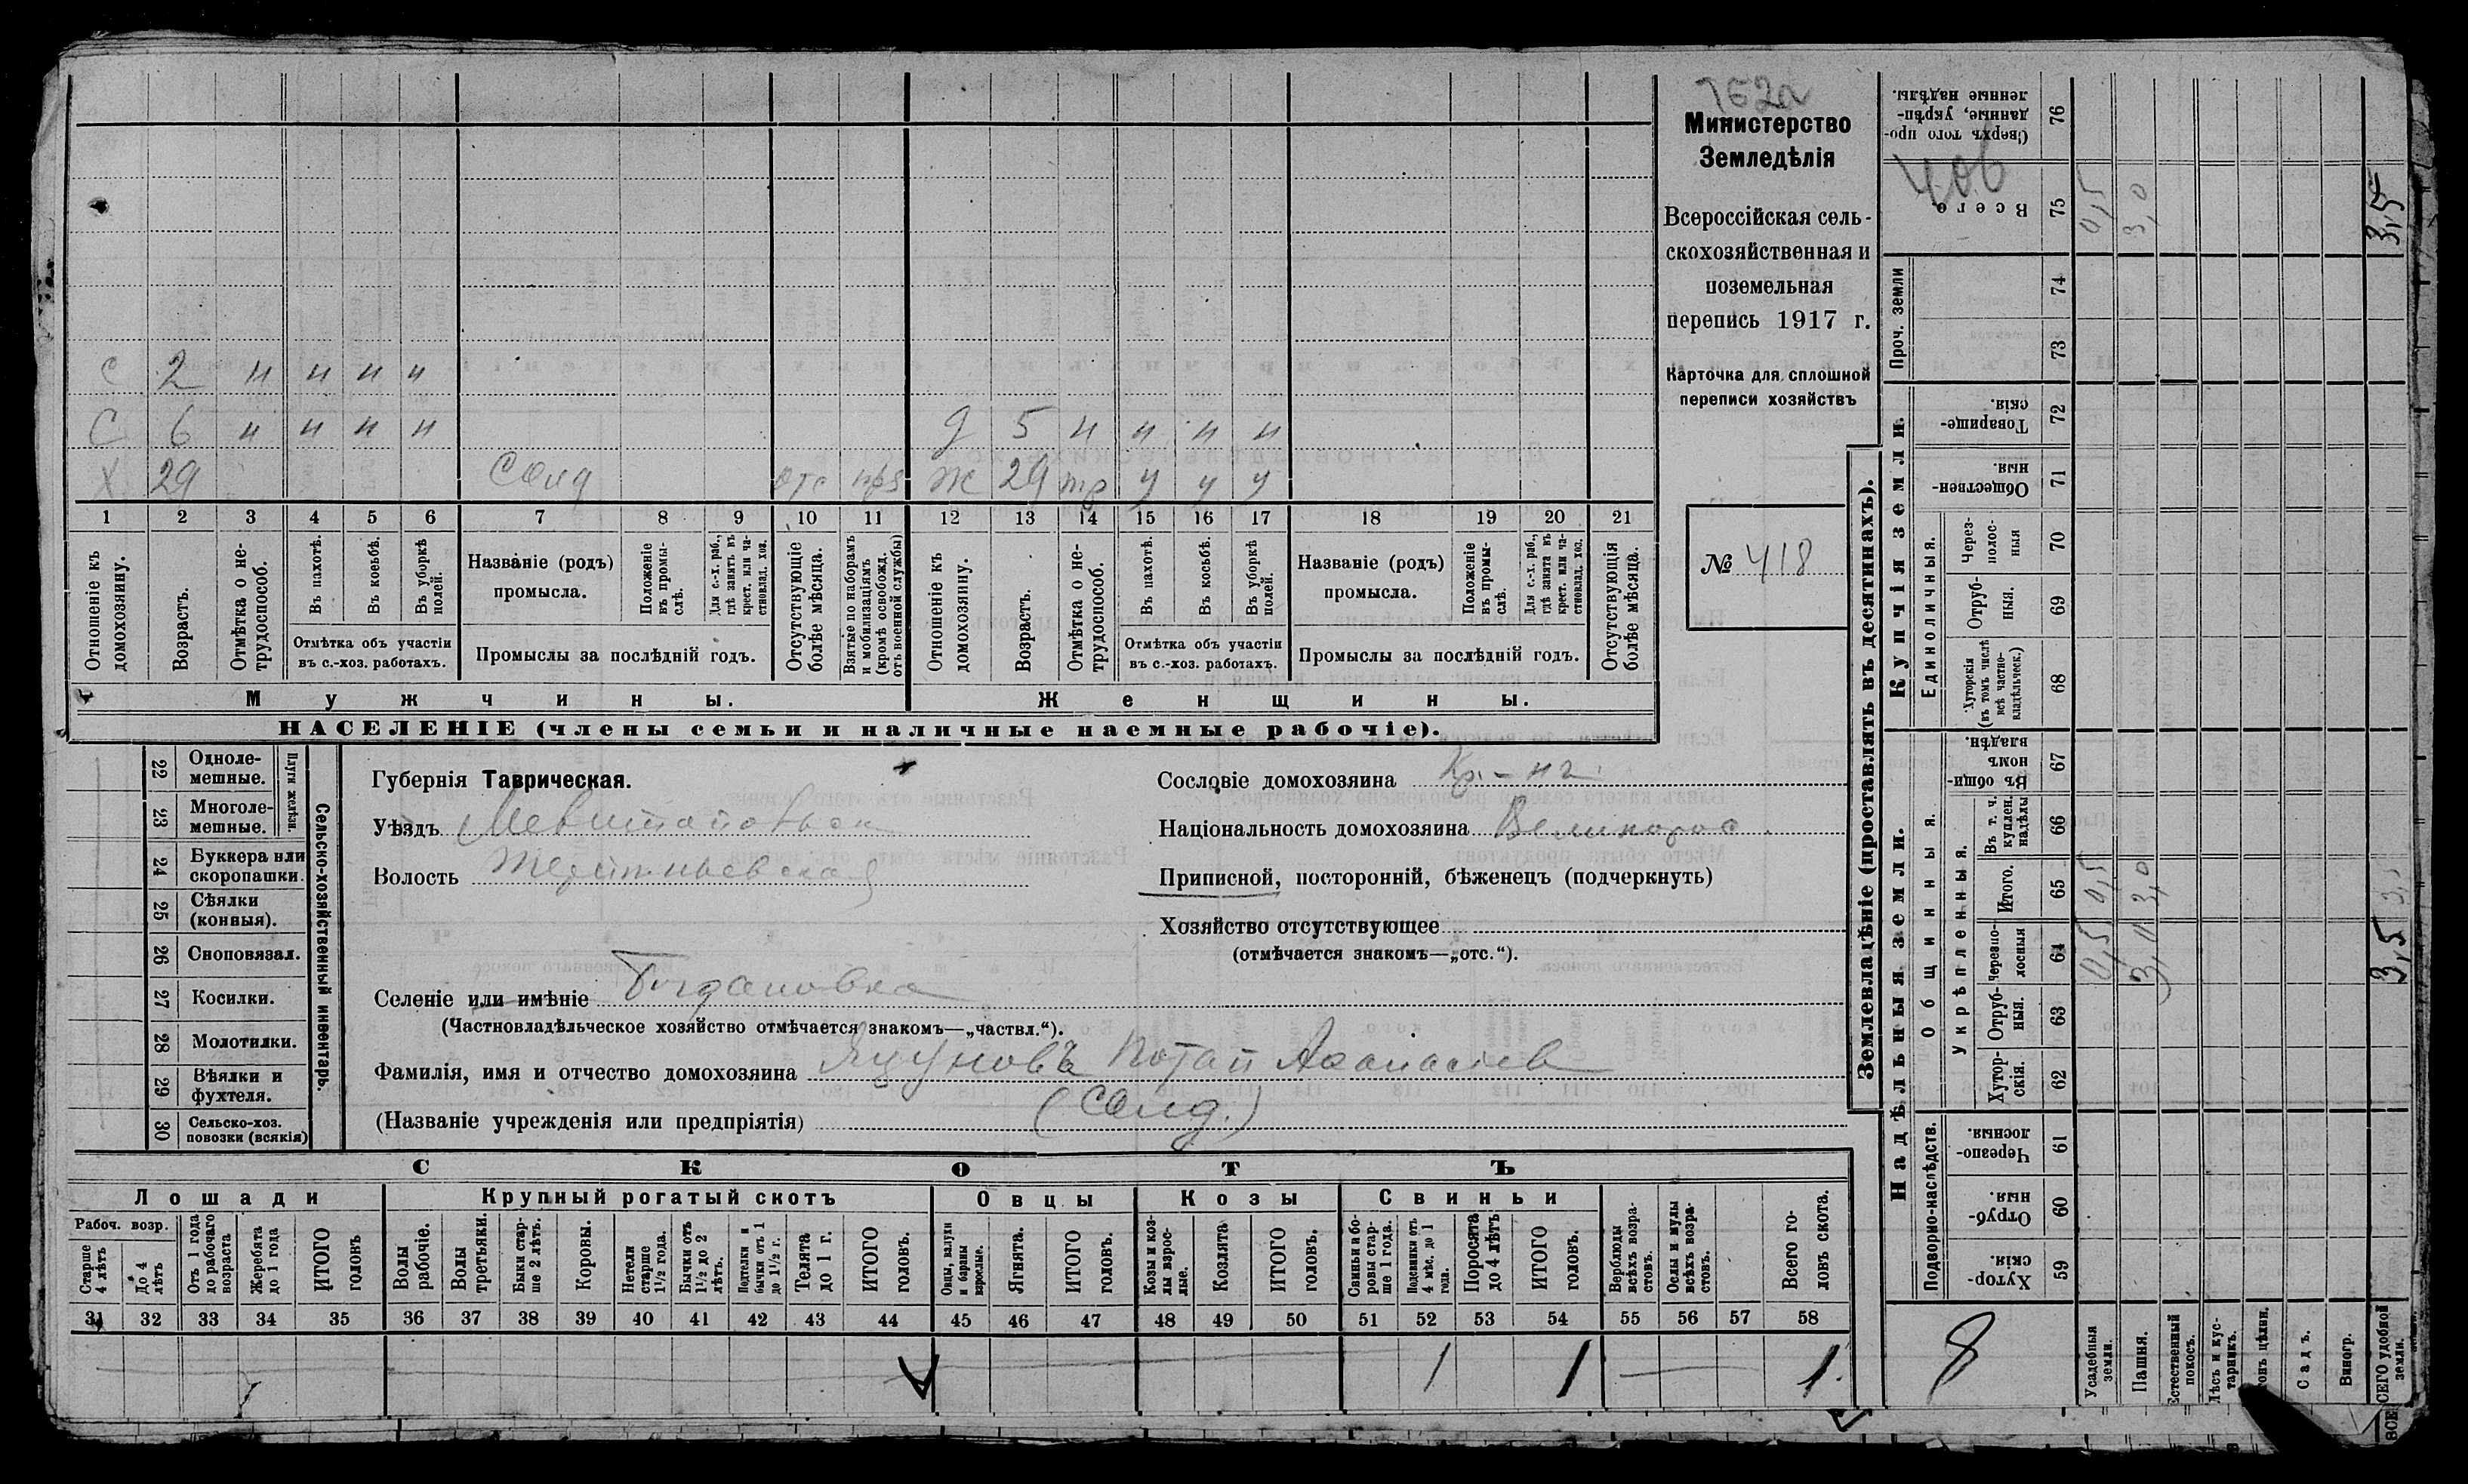 Министерство
Земледѣлія
Всероссійская сель-
скохозяйственная и
поземельная
перепись 1917 г.
Карточка для сплошной
переписи хозяйствъ
№ 418
406
С 2 н н н н
С 6 н н н н
Д 5 н н н н
Х 29 Солд отс
Ж 29 тр у у у
1 2 3 4 5 6 7 8 9 10 11 12 13 14 15 16 17 18 19 20 21
Отношеніе къ домохозяину.
Возрастъ.
Отмѣтка о не-трудоспособ.
Въ пахотѣ.
Въ косьбѣ.
Въ уборкѣ полей.
Отмѣтка объ участіи въ с.-хоз. работахъ.
Названіе (родъ) промысла.
Положеніе въ промы-слѣ.
Для с.-х. раб., гдѣ занятъ въ крест. или ча-стновлад. хоз.
Промыслы за послѣдній годъ.
Отсутствующіе болѣе мѣсяца.
Взятые по наборамъ и мобилизаціямъ (кромѣ освобожд. отъ военной службы)
Отношеніе къ домохозяину.
Возрастъ.
Отмѣтка о не-трудоспособ.
Въ пахотѣ.
Въ косьбѣ.
Въ уборкѣ полей.
Отмѣтка объ участіи въ с.-хоз. работахъ.
Названіе (родъ) промысла.
Положеніе въ промы-слѣ.
Для с.-х. раб., гдѣ занята въ крест. или ча-стновлад. хоз.
Промыслы за послѣдній годъ.
Отсутствующія болѣе мѣсяца.
Мужчины.
Женщины.
НАСЕЛЕНІЕ (члены семьи и наличные наемные рабочіе).
Сельско-хозяйственный инвентарь.
Плуги желѣзн.
22 Одноле-мешные.
23 Многоле-мешные.
24 Буккера или скоропашки.
25 Сѣялки (конныя).
26 Сноповязал.
27 Косилки.
28 Молотилки.
29 Вѣялки и фухтеля.
30 Сельско-хоз. повозки (всякія)
Губернія Таврическая.
Уѣздъ Мелитопольск
Волость
Сословіе домохозяина Кр-нъ
Національность домохозяина Великорос.
Приписной, посторонній, бѣженецъ (подчеркнуть)
Хозяйство отсутствующее
(отмѣчается знакомъ—„отс.“).
Селеніе или имѣніе Богдановка
(Частновладѣльческое хозяйство отмѣчается знакомъ—„частвл.“).
Фамилія, имя и отчество домохозяина Ящуновъ Потап Афанасіев
(Названіе учрежденія или предпріятія) (Солд.)
СКОТЪ
Лошади
Крупный рогатый скотъ
Овцы
Козы
Свиньи
Рабоч. возр.
Старше 4 лѣтъ
До 4 лѣтъ
Отъ 1 года до рабочаго возраста
Жеребята до 1 года
ИТОГО головъ
Волы рабочіе.
Волы третьяки.
Быки стар-ше 2 лѣтъ.
Коровы.
Нетели старше 1½ года.
Бычки отъ 1½ до 2 лѣтъ.
Подтелки и бычки отъ 1 до 1½ г.
Телята до 1 г.
ИТОГО головъ.
Овцы, валухи и бараны взрослые.
Ягнята.
ИТОГО головъ.
Козы и коз-лы взрос-лые.
Козлята
ИТОГО головъ.
Свиньи и бо-ровы стар-ше 1 года.
Подсвинки отъ 4 мѣс. до 1 года.
Поросята до 4 лѣтъ
ИТОГО головъ.
Верблюды всѣхъ возра-стовъ.
Ослы и мулы всѣхъ возра-стовъ.
Всего го-ловъ скота.
31 32 33 34 35 36 37 38 39 40 41 42 43 44 45 46 47 48 49 50 51 52 53 54 55 56 57 58
1 1 1.
Землевладѣніе (проставлять въ десятинахъ).
Надѣльныя земли.
Купчія земли.
Проч. земли
Подворно-наслѣдств.
Общинныя.
Укрѣпленныя.
Единоличныя.
Хутор-скія. 59
Отруб-ныя. 60
Черезпо-лосныя. 61
Хутор-скія. 62
Отруб-ныя. 63
Черезпо-лосныя 64
Итого. 65
Въ т. ч. куплен. надѣлы 66
Въ общи-номъ владѣн. 67
Хуторскія (въ томъ числѣ всѣ частно-владѣльческ.) 68
Отруб-ныя. 69
Через-полос-ныя 70
Обществен-ныя. 71
Товарище-скія. 72
73
74
Всего. 75
Сверхъ того про-данные, укрѣп-ленные надѣлы. 76
8
Усадебныя земли. 0,5 0,5 0,5
Пашня. 3,0 3,0 3,0
Естественный покосъ.
Лѣсъ и кус-тарникъ.
Садъ.
Виногр.
ВСЕГО удобной земли. 3,5 3,5 3,5